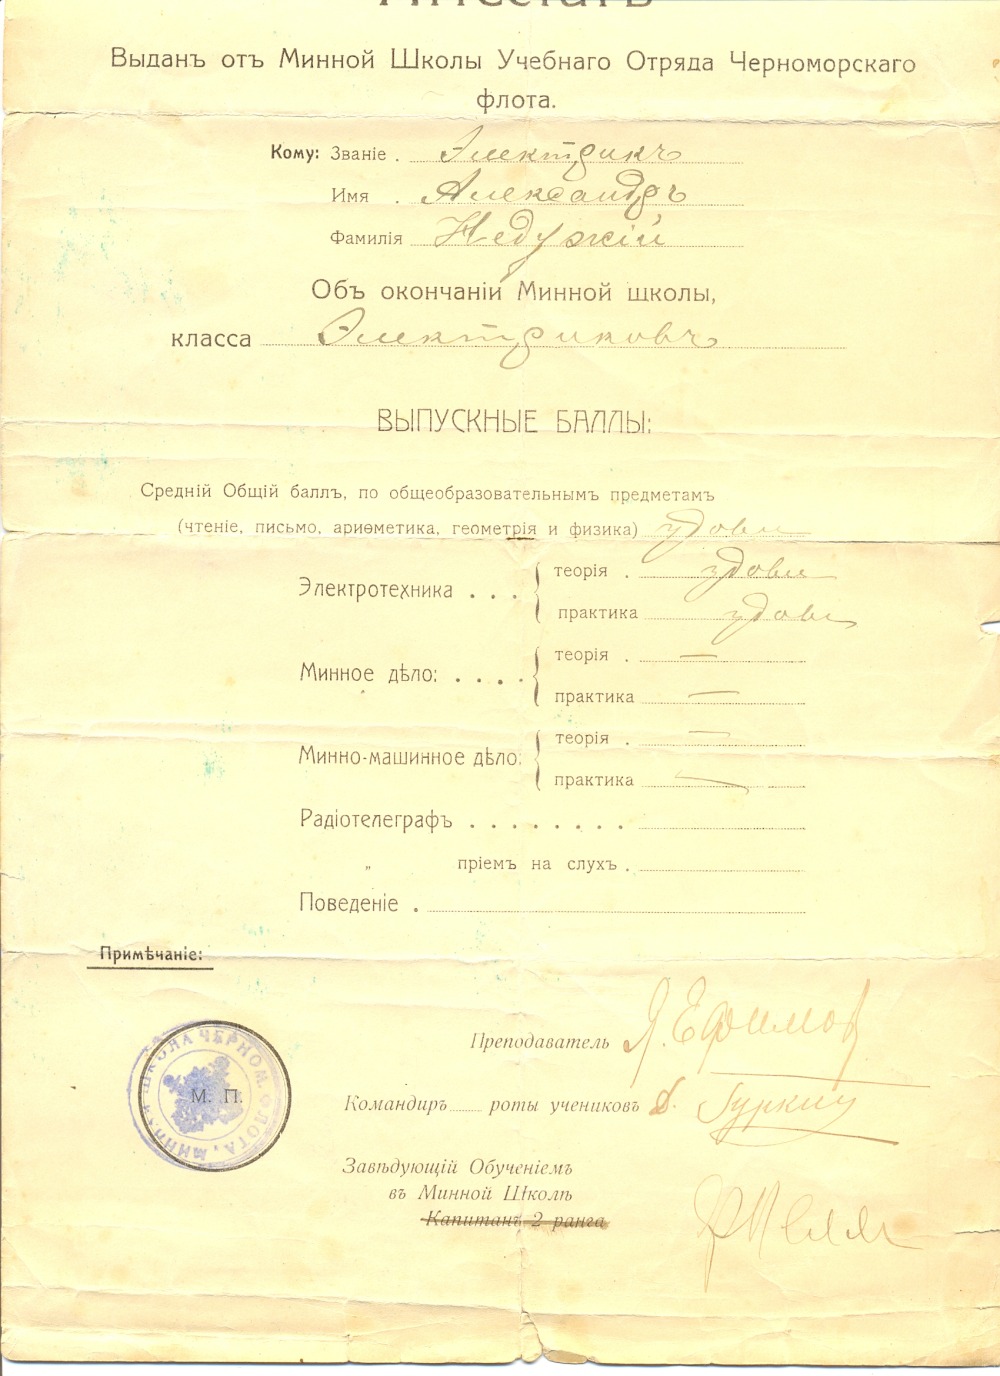 Аттестатъ
Выданъ отъ Минной Школы Учебнаго Отряда Черноморскаго
флота.
Кому: Званіе . Электрикъ
Имя . Александръ
Фамилія Недужій
Объ окончаніи Минной школы,
класса Электриковъ
ВЫПУСКНЫЕ БАЛЛЫ:
Средній Общій баллъ, по общеобразовательнымъ предметамъ
(чтеніе, письмо, ариѳметика, геометрія и физика) удовл
Электротехника . . . теорія . удовл
практика удовл
Минное дѣло: . . . . теорія . —
практика —
Минно-машинное дѣло: теорія . —
практика —
Радіотелеграфъ . . . . . . . .
„ пріемъ на слухъ .
Поведеніе .
Примѣчаніе:
Преподаватель Я. Ефимов
Командиръ роты учениковъ
Завѣдующій Обученіемъ
въ Минной Школѣ
Капитанъ 2 ранга
МИННАЯ ШКОЛА ЧЕРНОМ. ФЛОТА
М. П.